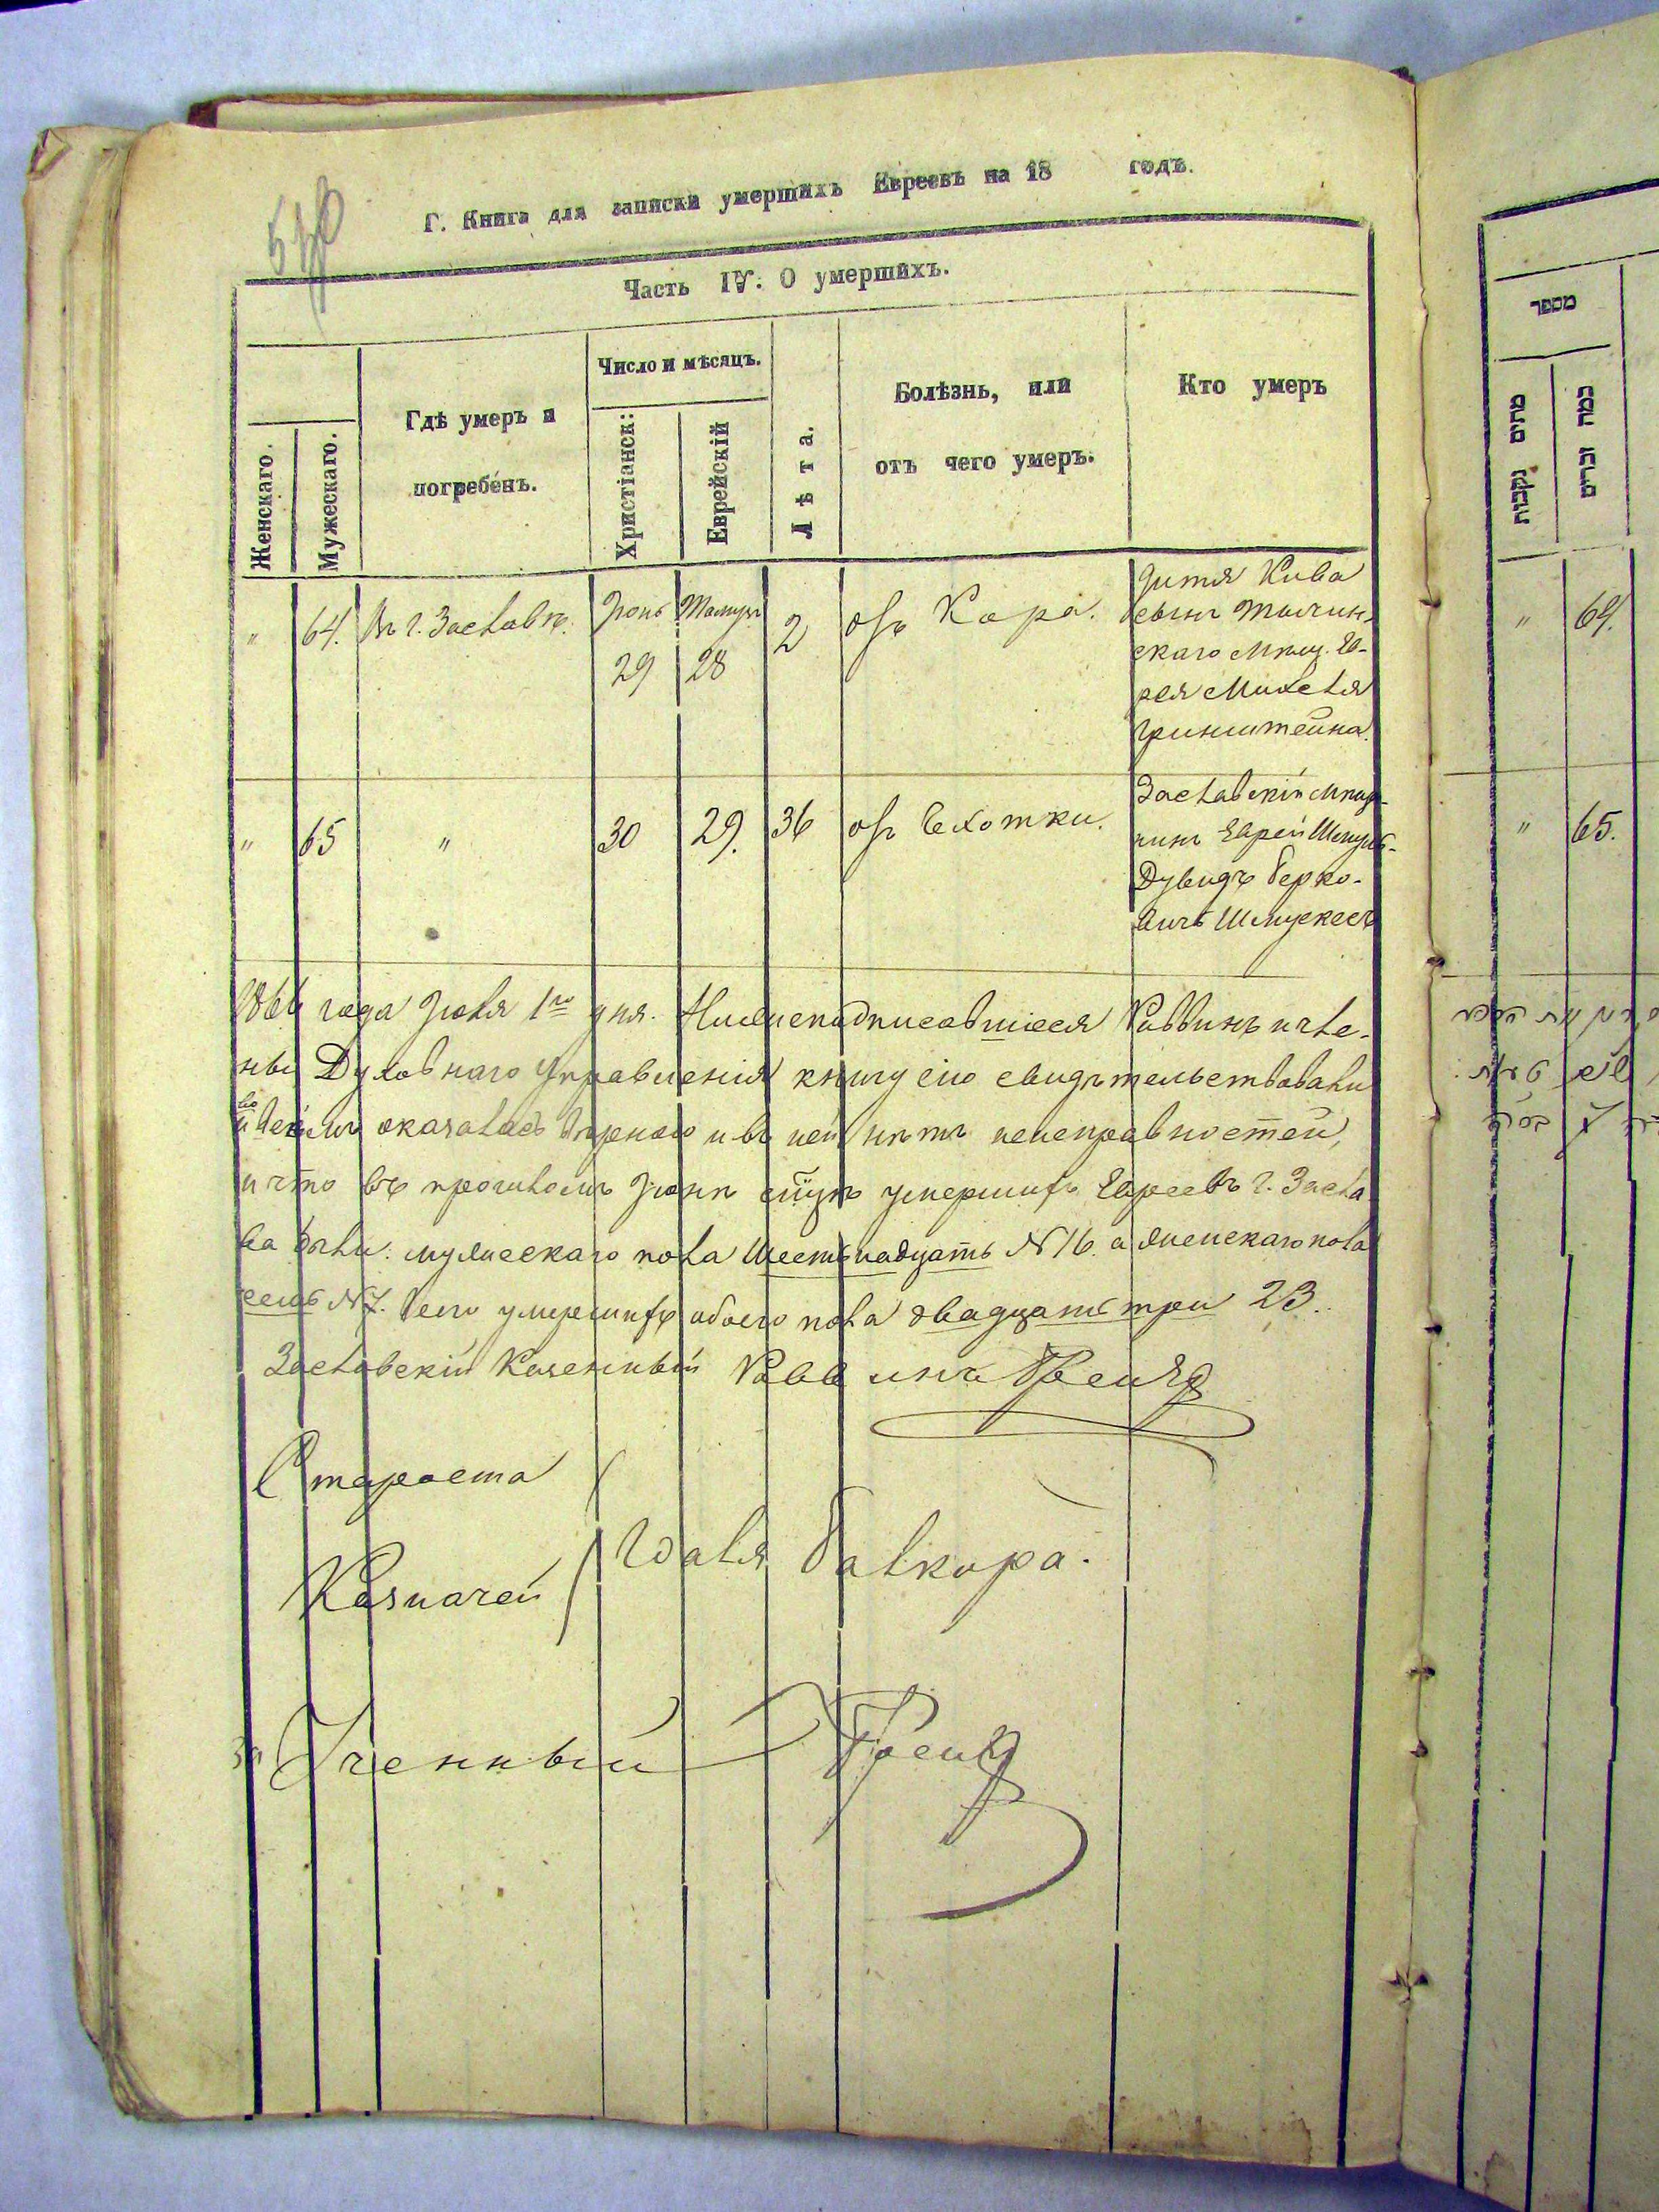 Г. Книга для записки умершихъ Евреевъ на 18 годъ.
Часть IV: О умершихъ.
Женскаго.
Мужескаго.
Гдѣ умеръ и
погребенъ.
Число и мѣсяцъ.
Христіанск:
Еврейскій
Лѣта.
Болѣзнь, или
отъ чего умеръ:
Кто умеръ
" 64. Въ г. Заславѣ. Іюнь 29 Тамузъ 28 2 отъ Кора. Дитя Кива
сынъ
скаго Мѣщ. Ев-
рея Михеля
Гринштейна.
" 65 " 30 29. 36 отъ Чехотки. Заславскій Мѣща-
нинъ Еврей Шмуль-
Дувидъ Берко-
вичъ
1866 года Іюля 1го дня. Нижеподписавшіеся Раввинъ и чле-
ны Духовнаго Управленія книгу сію свидѣтельствовали
и во всемъ оказалась вѣрною и въ ней нѣтъ неисправностей,
и что въ прошломъ Іюнѣ мѣсяцѣ умершихъ Евреевъ г. Засла
ва были: мужескаго пола шестьнадцать N 16. а женскаго пола
семь N 7. Всего умершихъ обоего пола двадцать три 23.
Заславскій Казенный Раввинъ
Староста
Казначей
За Ученный
מספר
מתים נקבות
כמה זכרים
" 64.
" 65.